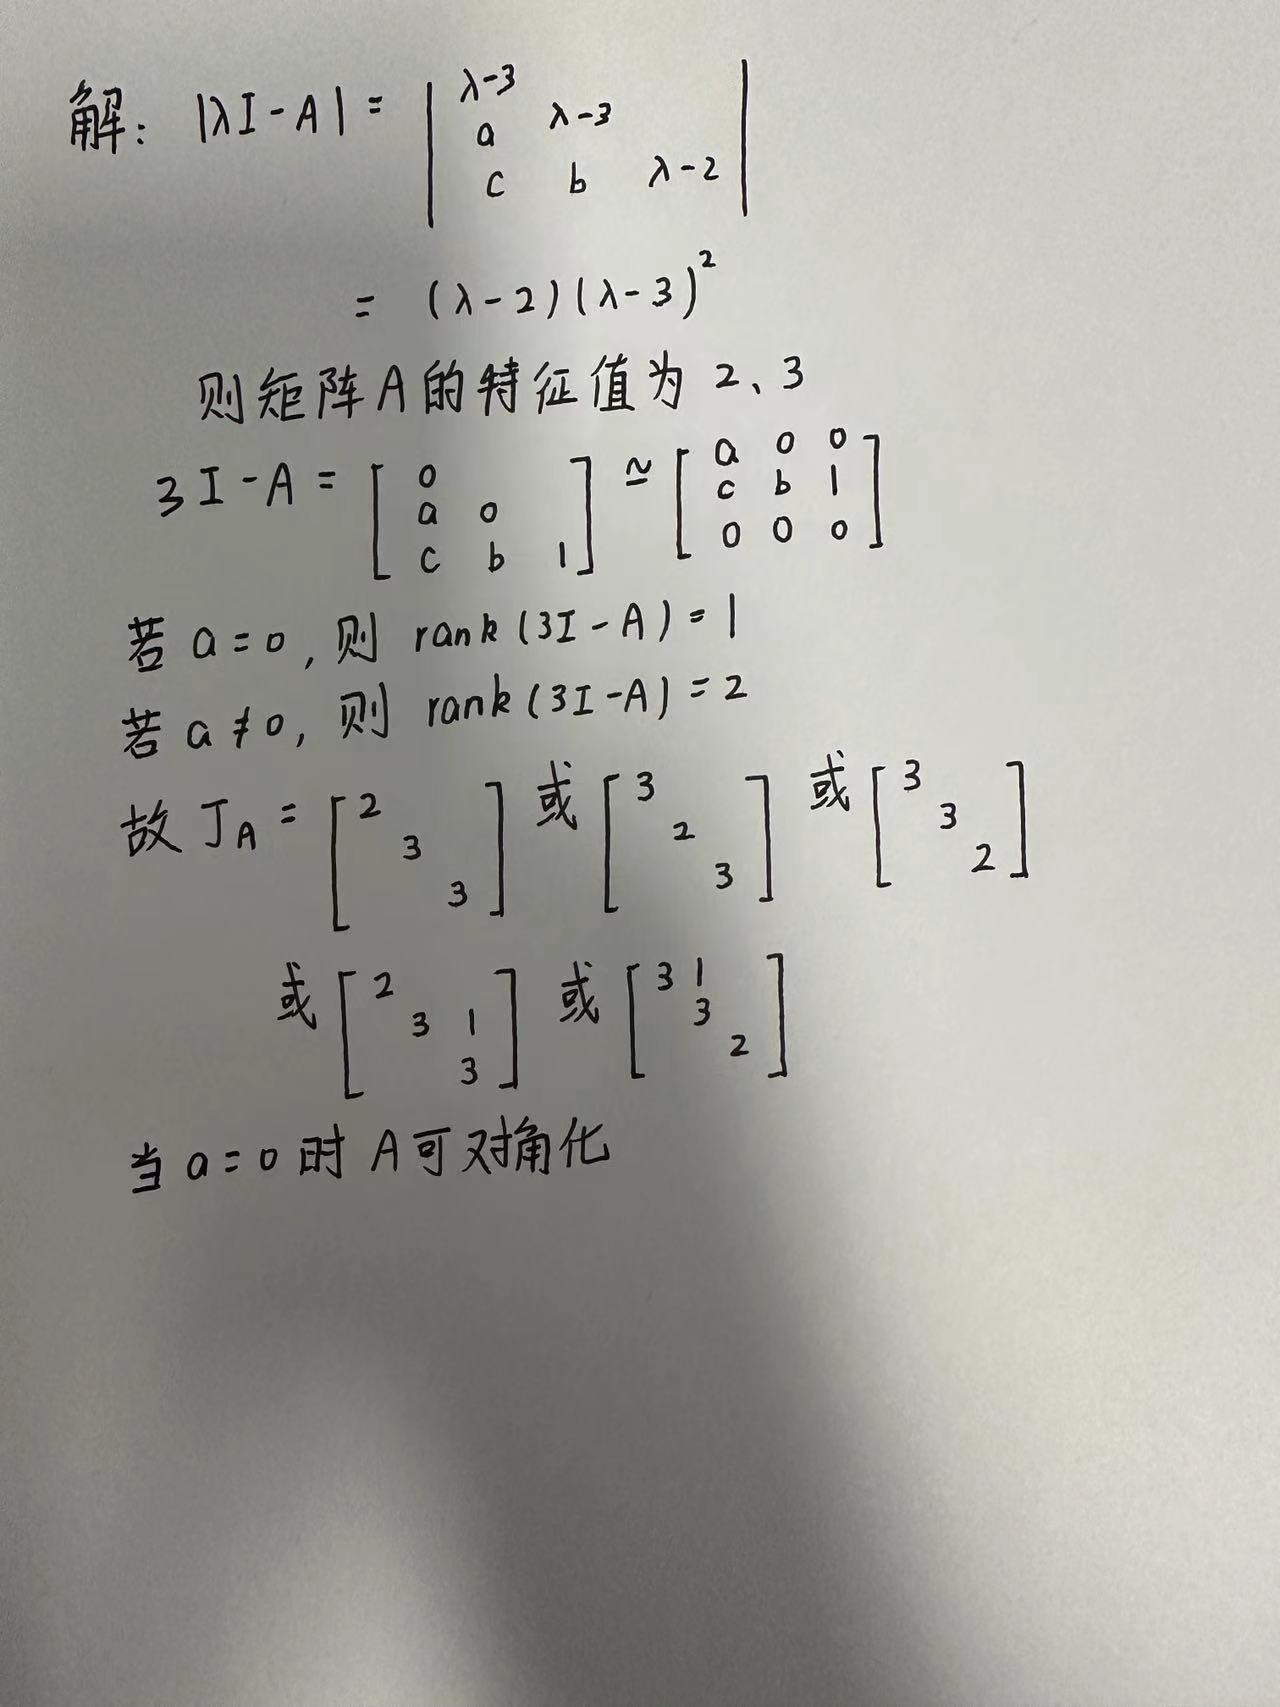 解: |λI-A| = | λ-3
a λ-3
c b λ-2 |
= (λ-2)(λ-3)²
则矩阵A的特征值为 2、3
3I-A = [ 0
a 0
c b 1 ] ≃ [ a 0 0
c b 1
0 0 0 ]
若 a=0, 则 rank(3I-A)=1
若 a≠0, 则 rank(3I-A)=2
故 J_A = [ 2
3
3 ] 或 [ 3
2
3 ] 或 [ 3
3
2 ]
或 [ 2
3 1
3 ] 或 [ 3 1
3
2 ]
当 a=0 时 A可对角化